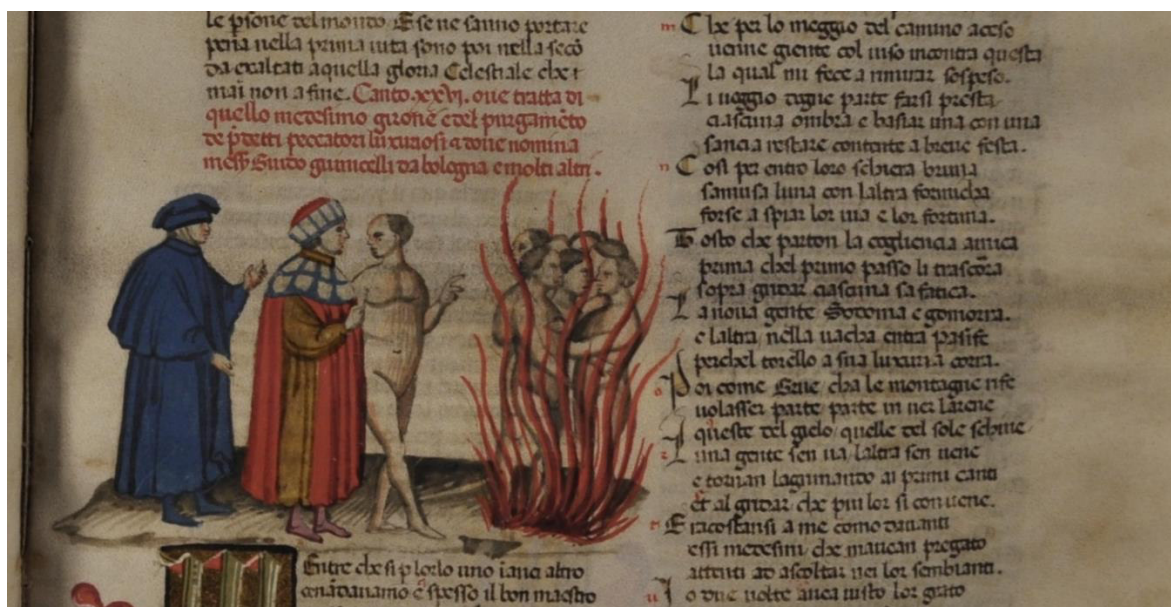 le psone del mondo. E se ne sanno portare
pena nella prima uita sono poi nella seco
da exaltati a quella gloria Celestiale che i
mai non a fine. Canto .xxvi. oue tratta di
quello medesimo girone e del purgameto
de pdetti peccatori luxuriosi 
mess Guido guinicelli da bologna e molti altri.
Entre che si p lorlo uno inanci altro
e spesso il bon maestro
m Che per lo meggio del camino aceso
uenne giente col uiso incontra questa
la qual mi fece a rimirar sospeso.
Li ueggio dogne parte farsi presta
ciascuna ombra e basiar una con una
sanca restare contente a breue festa.
n Cosi per entro loro schiera bruna
samusa luna con laltra formicha
forse a spiar lor uia e lor fortuna.
Tosto che parton la cogliencia amica
prima chel primo passo li trascora
sopra gridar ciascuna sa fatica.
La noua gente Sodoma e gomorra.
e laltra nella uacha entra Pasife
perchel torello a sua luxuria corra.
o Poi come Grue cha le montagne rife
uolasser parte parte in uer larene
queste del gielo quelle del sole schiue
Luna gente sen ua laltra sen uene
e tornan lagrimando ai primi canti
et al gridar che piu lor si conuene.
E racostansi a me como dauanti
essi medesimi che mauean pregato
attenti ad ascoltar nei lor sembianti.
Io due uolte auea uisto lor grato